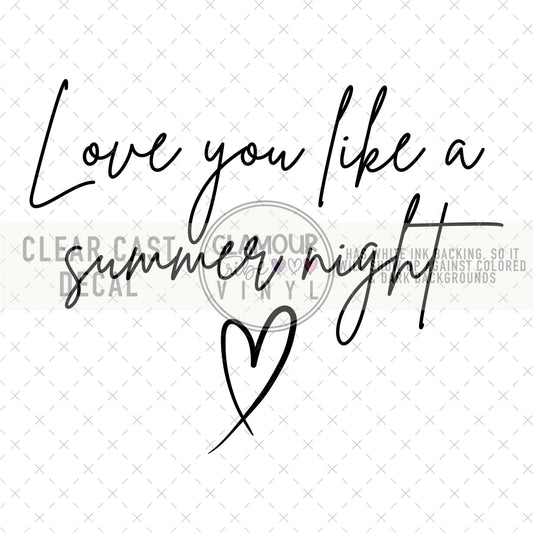 Love you like a
summer night
CLEAR CAST
DECAL
GLAMOUR
VINYL
HAS WHITE INK BACKING, SO IT
AGAINST COLORED
& DARK BACKGROUNDS